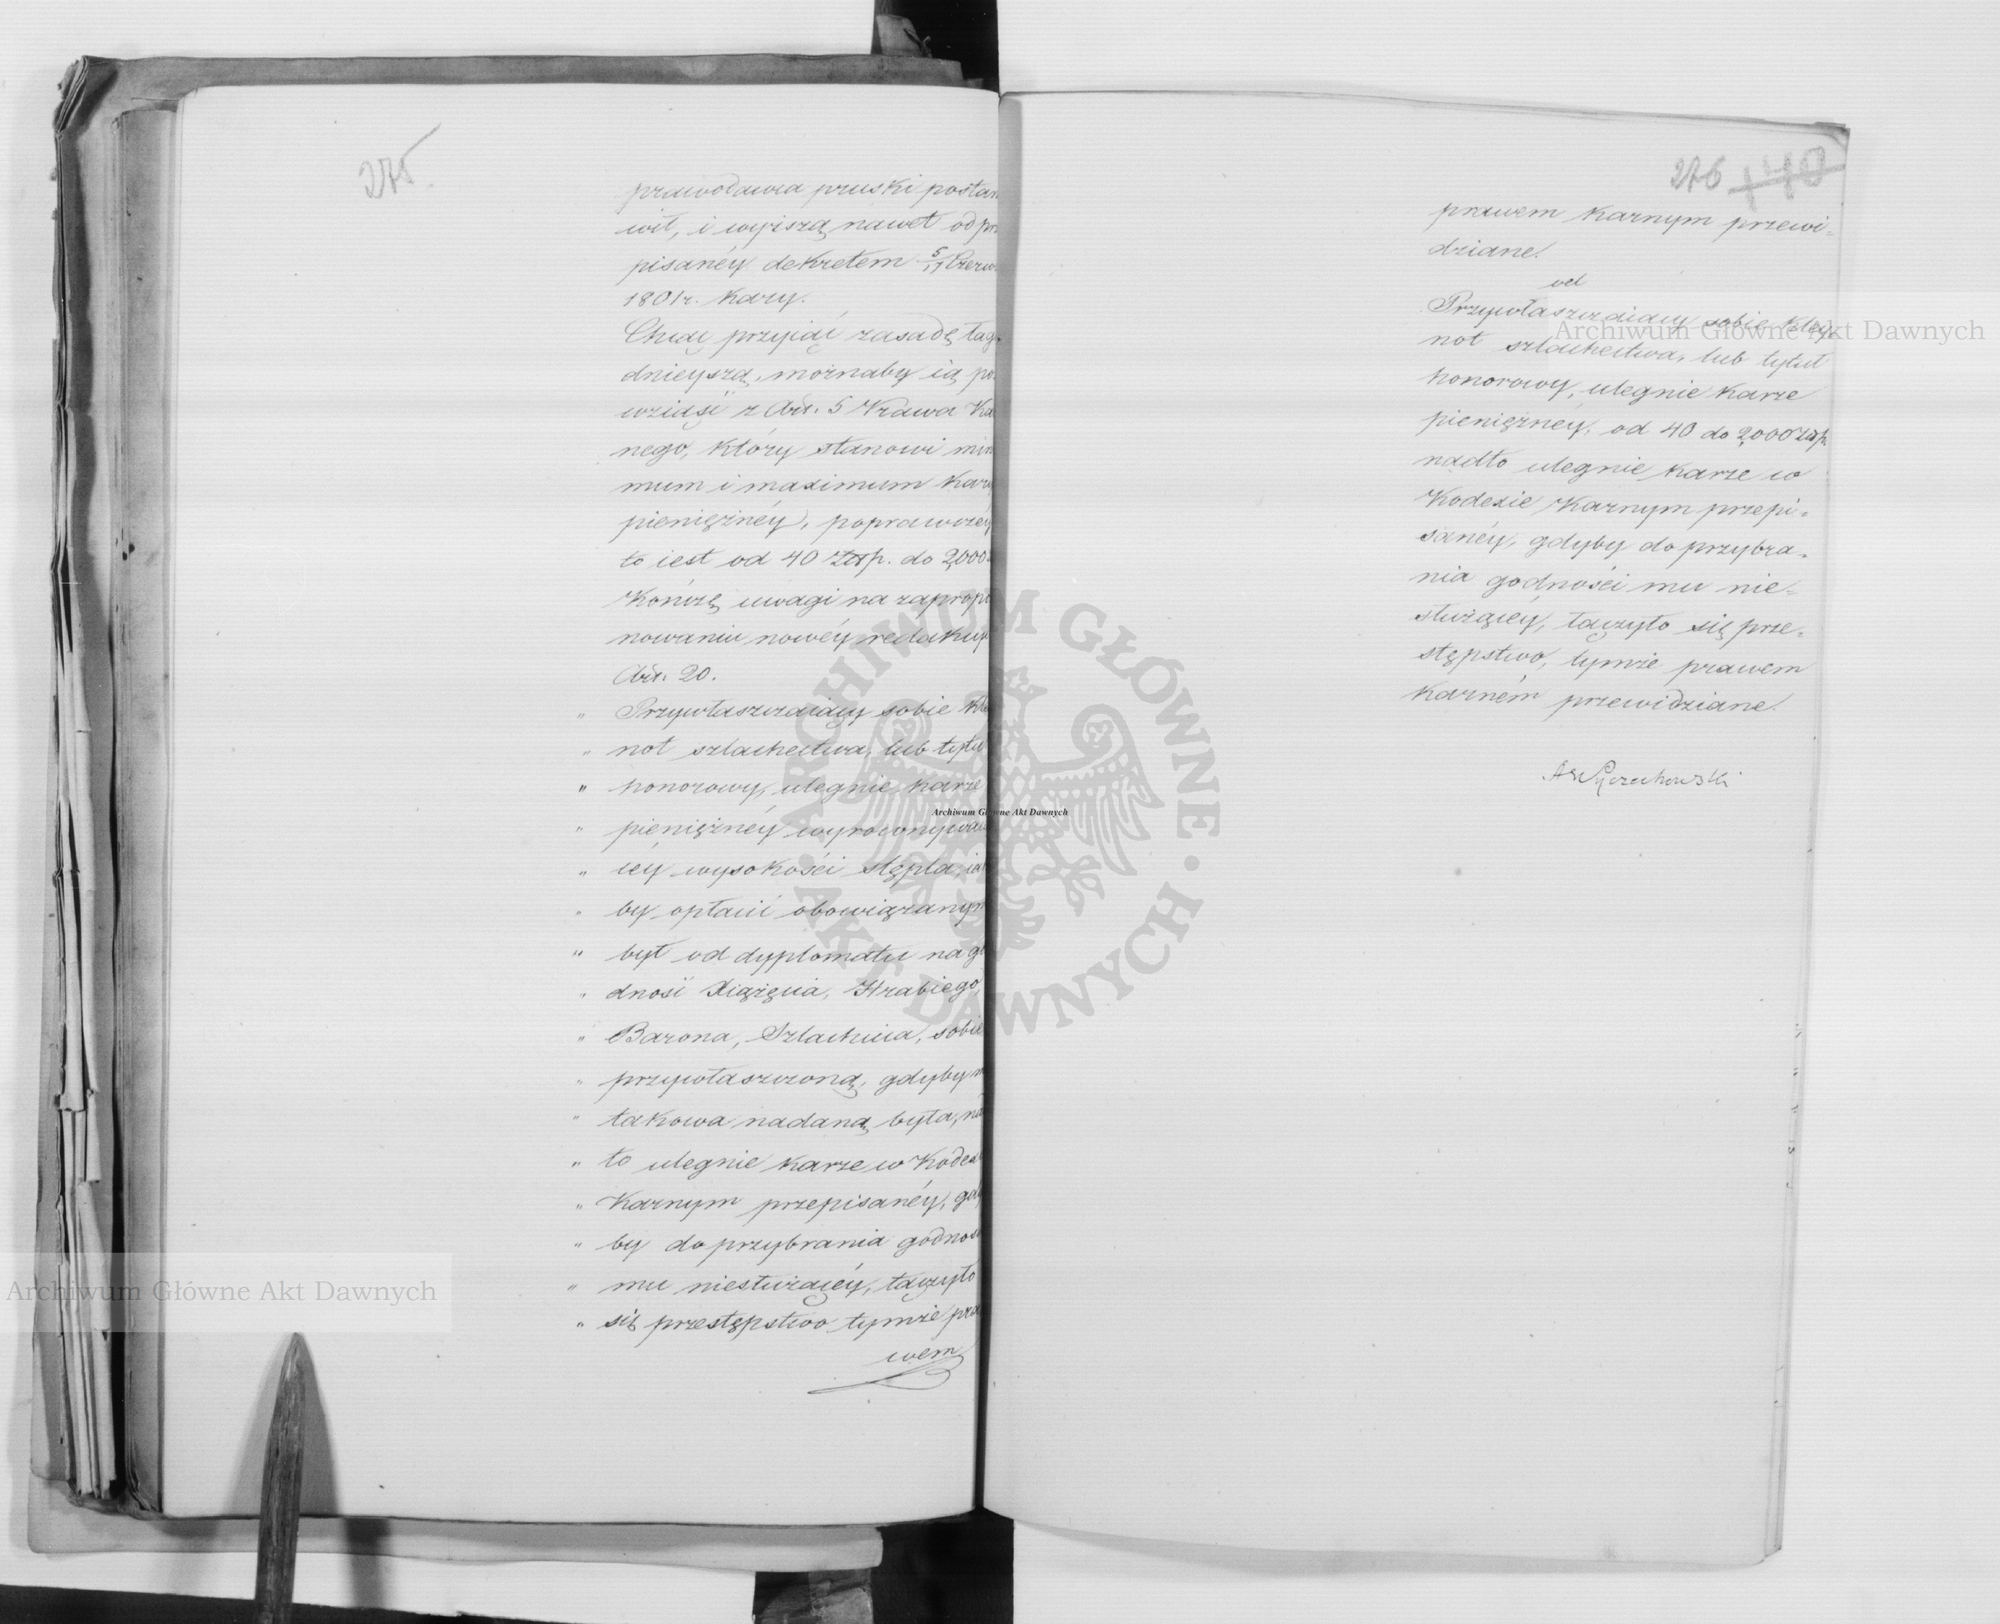 275
prawodawca pruski postan
wił, i wyiszą nawet od pr
pisanéy dekretem 5/17 Czerw
1801 r. Kary.
Chcąc przyiąć zasadę łag
dnieyszą, możnaby ią po
wziąść z Art. 5 Prawa Ka
nego, który stanowi min
mum i maximum Kary
pieniężnéy, poprawczéy
to iest od 40 Złłp. do 2,000
Kończę uwagi na zapropo
nowaniu nowéy redakcyi
Art. 20.
„ Przywłaszczaiący sobie Kle
„ not szlachectwa, lub tytuł
„ honorowy, ulegnie karze
„ pieniężnéy wyrównywaią
„ céy wysokości stępla, ia
„ by opłacić obowiązanym
„ był od dyplomatu na go
„ dność Xiążęcia, Hrabiego,
„ Barona, Szlachcica, sobie
„ przywłaszczoną, gdyby m
„ takowa nadaną była, nad
„ to ulegnie karze w Kodex
„ Karnym przepisanéy, gdy
„ by do przybrania godnośc
„ mu niesłużącéy, łączyło
„ się przestępstwo tymże pra
wem
276 140
prawem Karnym przewi-
dziane.
vel
Przywłaszczaiący sobie Kley-
not szlachectwa, lub tytuł
honorowy, ulegnie karze
pieniężnéy, od 40 do 2,000 Złłp.
nadto ulegnie karze w
Kodexie Karnym przepi-
sanéy, gdyby do przybra-
nia godności mu nie-
służącéy, łączyło się prze-
stępstwo, tymże prawem
Karném przewidziane.
A Wyczechowski
Archiwum Główne Akt Dawnych
Archiwum Główne Akt Dawnych
Archiwum Główne Akt Dawnych
ARCHIWUM GŁÓWNE • AKT DAWNYCH •